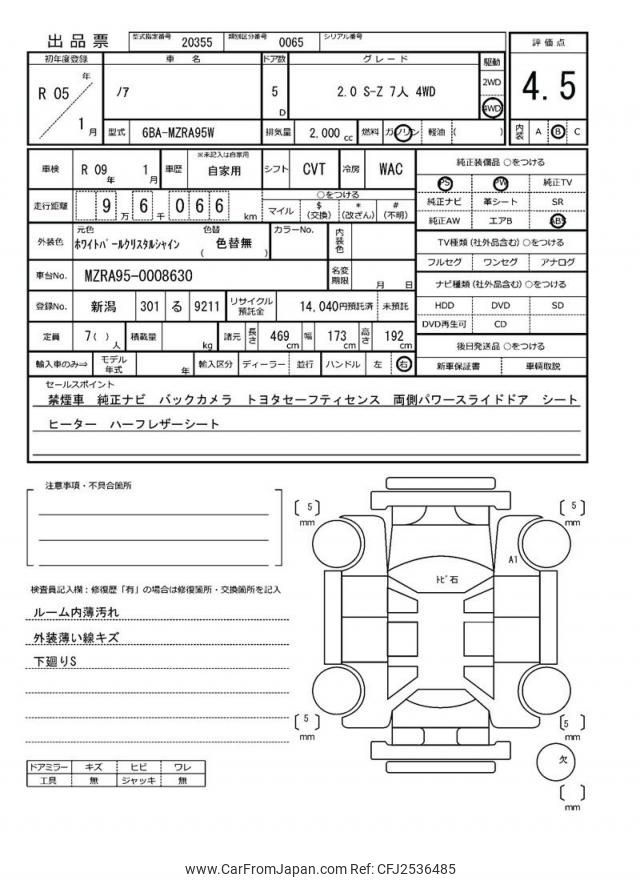 出品票
型式指定番号 20355 類別区分番号 0065 シリアル番号
評価点
4.5
内装 A B C
初年度登録 車名 ドア数 グレード 駆動
R 05年 1月 ﾉｱ 5D 2.0 S-Z 7人 4WD 2WD 4WD
型式 6BA-MZRA95W 排気量 2,000cc 燃料 ガソリン 軽油 ( )
車検 R 09年 1月 車歴 ※未記入は自家用 自家用 シフト CVT 冷房 WAC
走行距離 9 6 0 6 6 万 千 km
○をつける
マイル $(交換) *(改ざん) #(不明)
外装色 元色 ﾎﾜｲﾄﾊﾟｰﾙｸﾘｽﾀﾙｼｬｲﾝ 色替 ( 色替無 ) カラーNo. 内装色
車台No. MZRA95-0008630 名変期限 月 日
登録No. 新潟 301 る 9211 リサイクル預託金 14,040円預託済 未預託
定員 7( )人 積載量 kg 諸元 長さ 469cm 幅 173cm 高さ 192cm
輸入車のみ⇒ モデル年式 年 輸入区分 ディーラー 並行 ハンドル 左 右
純正装備品 ○をつける
PS PW 純正TV
純正ナビ 革シート SR
純正AW エアB ABS
TV種類(社外品含む)○をつける
フルセグ ワンセグ アナログ
ナビ種類(社外品含む)○をつける
HDD DVD SD
DVD再生可 CD
後日発送品 ○をつける
新車保証書 車輌取説
セールスポイント
禁煙車 純正ナビ バックカメラ トヨタセーフティセンス 両側パワースライドドア シート
ヒーター ハーフレザーシート
注意事項・不具合箇所
検査員記入欄：修復歴「有」の場合は修復箇所・交換箇所を記入
ルーム内薄汚れ
外装薄い線キズ
下廻りS
ドアミラー キズ ヒビ ワレ
工具 無 ジャッキ 無
[ 5 ] mm
[ 5 ] mm
A1
ﾄﾋﾞ石
[ 5 ] mm
[ 5 ] mm
欠
[ ] mm
www.CarFromJapan.com Ref: CFJ2536485